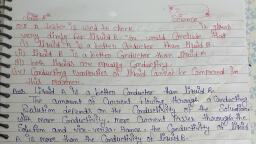 Science
Q:8 A tester is used to check
very dimly for liquid B. You would conclude that
(i) Liquid A is a better conductor than liquid B
(ii) Liquid B is a better conductor than liquid A
(iii) both liquids are equally conducting.
(iv) Conducting properties of liquid cannot be compared in
manner.
Ans: Liquid A is a better conductor than liquid B.
The amount of current flowing through a conducting
solution depends on the conductivity of the solution
with more conductivity, more current passes through the
solution and vice-versa. Hence, the conductivity of liquid
A is more than the conductivity of liquid B.